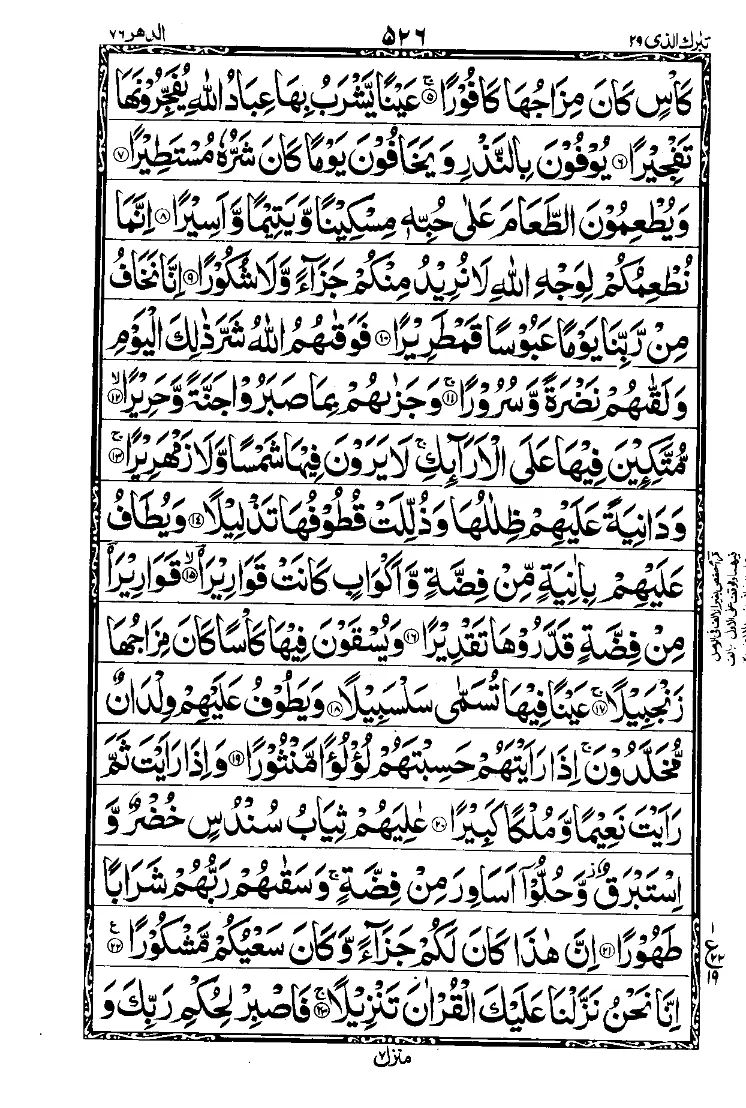 تبٰرك الذى ٢٩
۵۲۶
الدهر ٧٦
كَاْسٍ كَانَ مِزَاجُهَا كَافُوْرًا ۚ‏﴿۵﴾ عَيْنًا يَّشْرَبُ بِهَا عِبَادُ اللّٰهِ يُفَجِّرُوْنَهَا
تَفْجِيْرًا ﴿۶﴾ يُوْفُوْنَ بِالنَّذْرِ وَيَخَافُوْنَ يَوْمًا كَانَ شَرُّهٗ مُسْتَطِيْرًا ﴿۷﴾
وَيُطْعِمُوْنَ الطَّعَامَ عَلٰى حُبِّهٖ مِسْكِيْنًا وَّيَتِيْمًا وَّاَسِيْرًا ﴿۸﴾ اِنَّمَا
نُطْعِمُكُمْ لِوَجْهِ اللّٰهِ لَا نُرِيْدُ مِنْكُمْ جَزَآءً وَّلَا شُكُوْرًا ﴿۹﴾ اِنَّا نَخَافُ
مِنْ رَّبِّنَا يَوْمًا عَبُوْسًا قَمْطَرِيْرًا ﴿۱۰﴾ فَوَقٰىهُمُ اللّٰهُ شَرَّ ذٰلِكَ الْيَوْمِ
وَلَقّٰىهُمْ نَضْرَةً وَّسُرُوْرًا ۚ﴿۱۱﴾ وَجَزٰىهُمْ بِمَا صَبَرُوْا جَنَّةً وَّحَرِيْرًا ۙ﴿۱۲﴾
مُّتَّكِـِٕيْنَ فِيْهَا عَلَى الْاَرَآئِكِ ۚ لَا يَرَوْنَ فِيْهَا شَمْسًا وَّلَا زَمْهَرِيْرًا ۚ﴿۱۳﴾
وَدَانِيَةً عَلَيْهِمْ ظِلٰلُهَا وَذُلِّلَتْ قُطُوْفُهَا تَذْلِيْلًا ﴿۱۴﴾ وَيُطَافُ
عَلَيْهِمْ بِاٰنِيَةٍ مِّنْ فِضَّةٍ وَّاَكْوَابٍ كَانَتْ قَوَارِيْرَا۠ ۙ﴿۱۵﴾ قَوَارِيْرَا۠
مِنْ فِضَّةٍ قَدَّرُوْهَا تَقْدِيْرًا ﴿۱۶﴾ وَيُسْقَوْنَ فِيْهَا كَاْسًا كَانَ مِزَاجُهَا
زَنْجَبِيْلًا ۚ﴿۱۷﴾ عَيْنًا فِيْهَا تُسَمّٰى سَلْسَبِيْلًا ﴿۱۸﴾ وَيَطُوْفُ عَلَيْهِمْ وِلْدَانٌ
مُّخَلَّدُوْنَ ۚ اِذَا رَاَيْتَهُمْ حَسِبْتَهُمْ لُؤْلُؤًا مَّنْثُوْرًا ﴿۱۹﴾ وَاِذَا رَاَيْتَ ثَمَّ
رَاَيْتَ نَعِيْمًا وَّمُلْكًا كَبِيْرًا ﴿۲۰﴾ عٰلِيَهُمْ ثِيَابُ سُنْدُسٍ خُضْرٌ وَّ
اِسْتَبْرَقٌ ۫ وَّحُلُّوْۤا اَسَاوِرَ مِنْ فِضَّةٍ ۚ وَسَقٰىهُمْ رَبُّهُمْ شَرَابًا
طَهُوْرًا ﴿۲۱﴾ اِنَّ هٰذَا كَانَ لَكُمْ جَزَآءً وَّكَانَ سَعْيُكُمْ مَّشْكُوْرًا ﴿۲۲﴾ ع
اِنَّا نَحْنُ نَزَّلْنَا عَلَيْكَ الْقُرْاٰنَ تَنْزِيْلًا ۚ﴿۲۳﴾ فَاصْبِرْ لِحُكْمِ رَبِّكَ وَ
منزل ۷
ع
۱
۲۲
۱۹